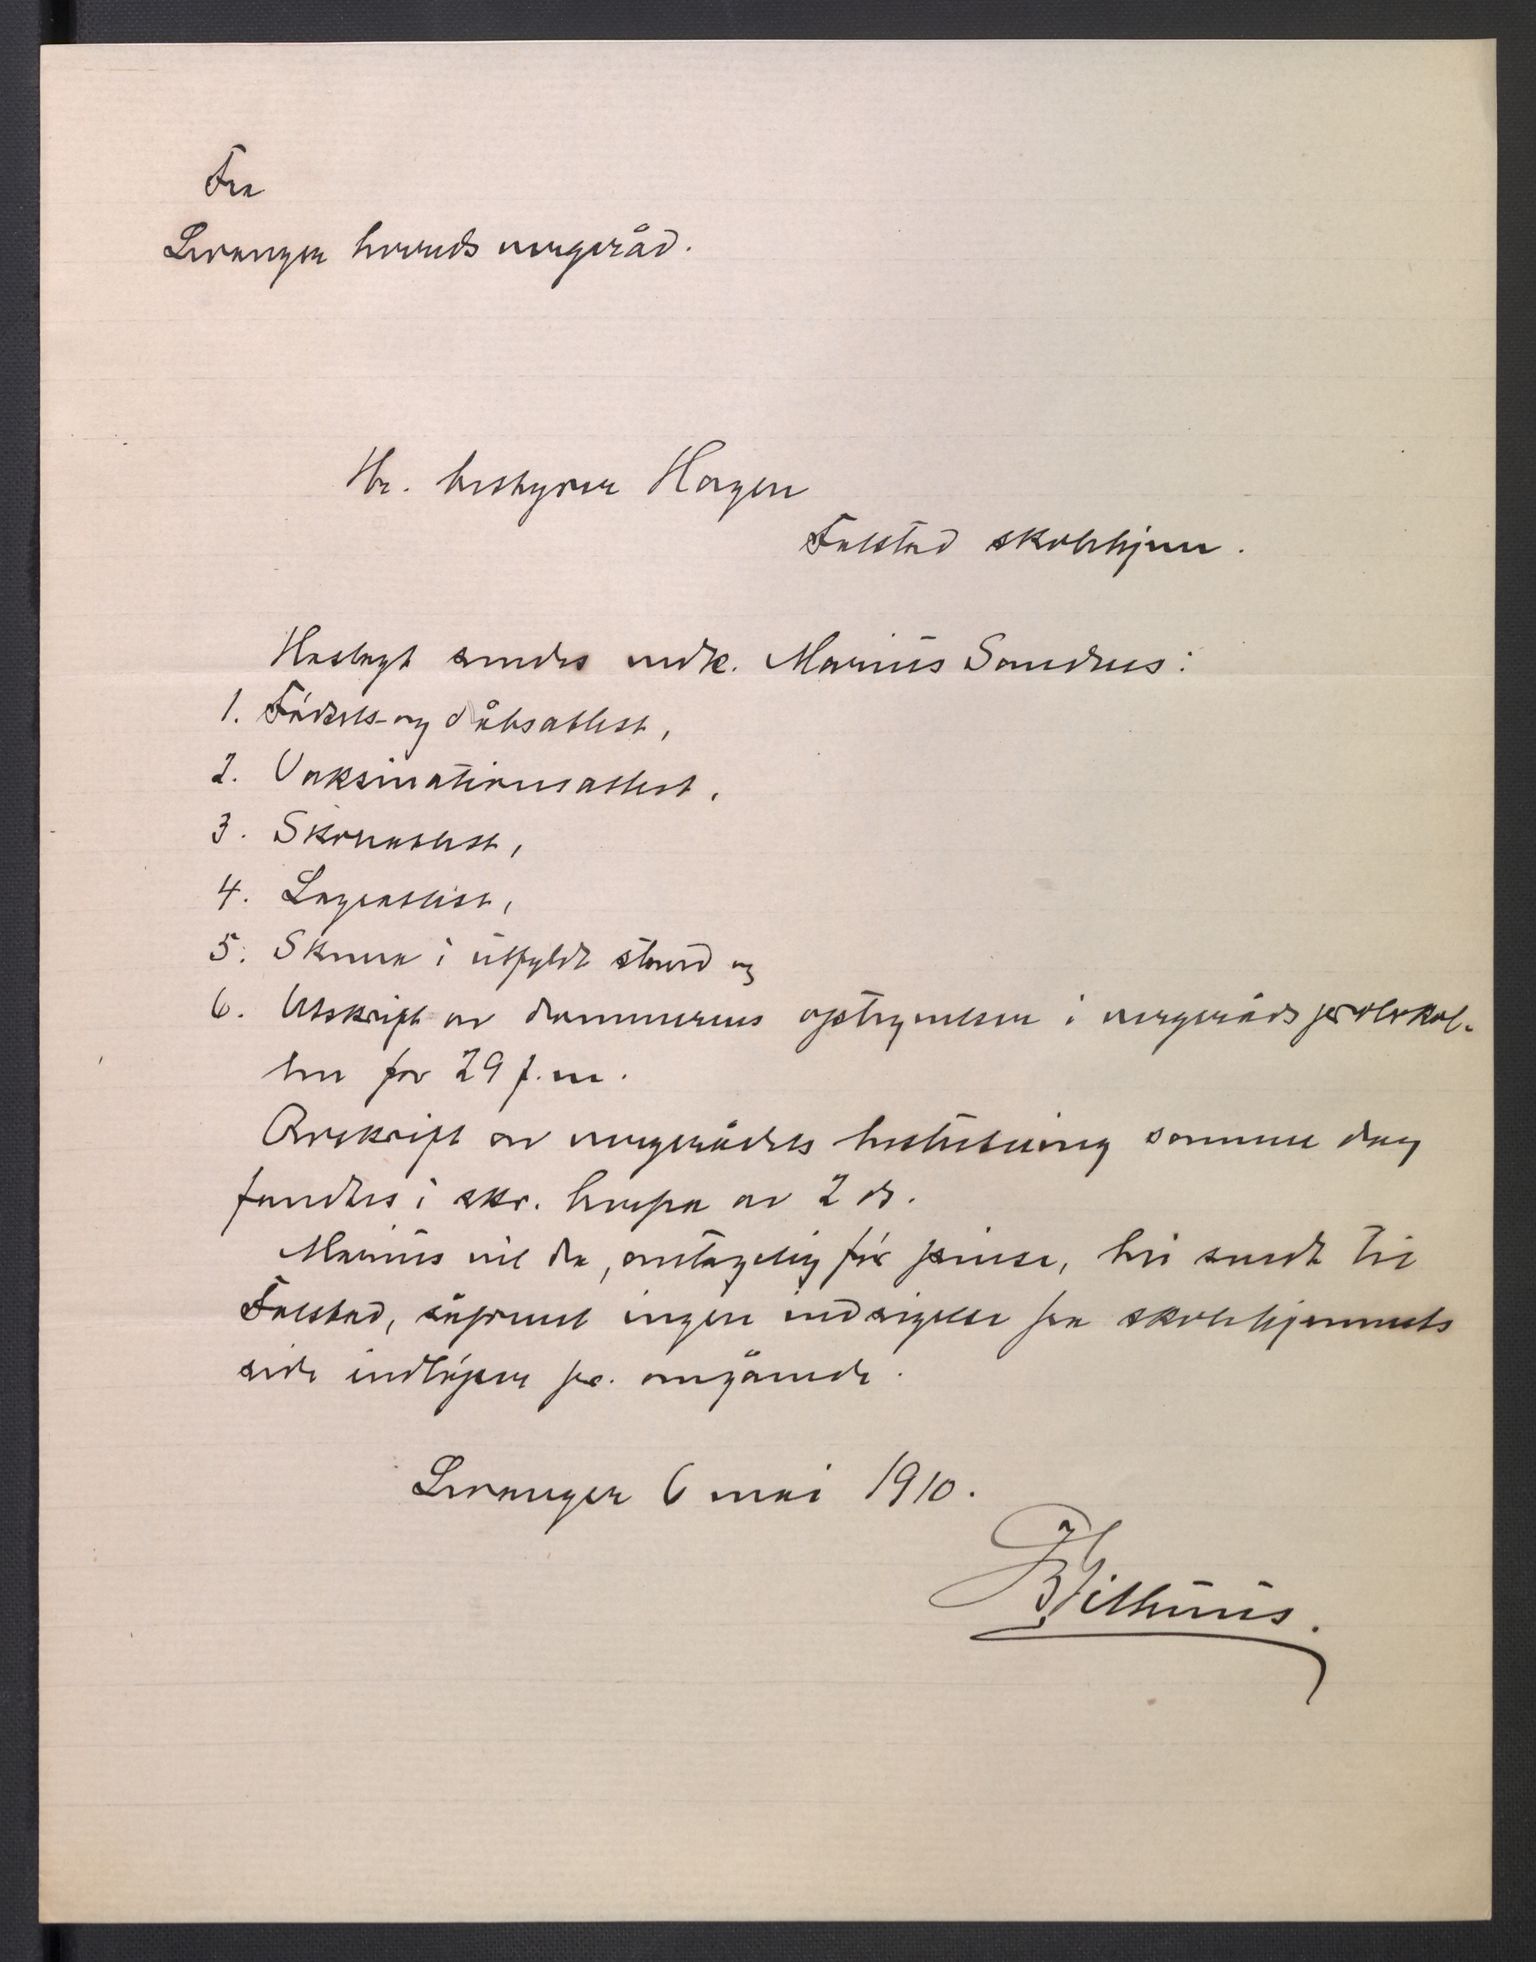 Fra
Levanger herreds vergeråd.
Hr. bestyrer Hagen
Falstad skolehjem.
Hoslagt sendes vedk. Marius Sandnes:
1. Fødsels- og dåbsattest,
2. Vaksinationsattest,
3. Skoleattest,
4. Lægeattest,
5. Skema i utfyldt stand og
6. Utskrift av dommerens optegnelser i vergeråds protokol-
len for 29 f. m.
Avskrift av vergerådets beslutning samme dag
fandtes i skr. herfra av 2 ds.
Marius vil da, antagelig før pinse, bli sendt til
Falstad, såfremt ingen indsigelse fra skolehjemmets
side indløper pr. omgående.
Levanger 6 mai 1910.
Vithus.